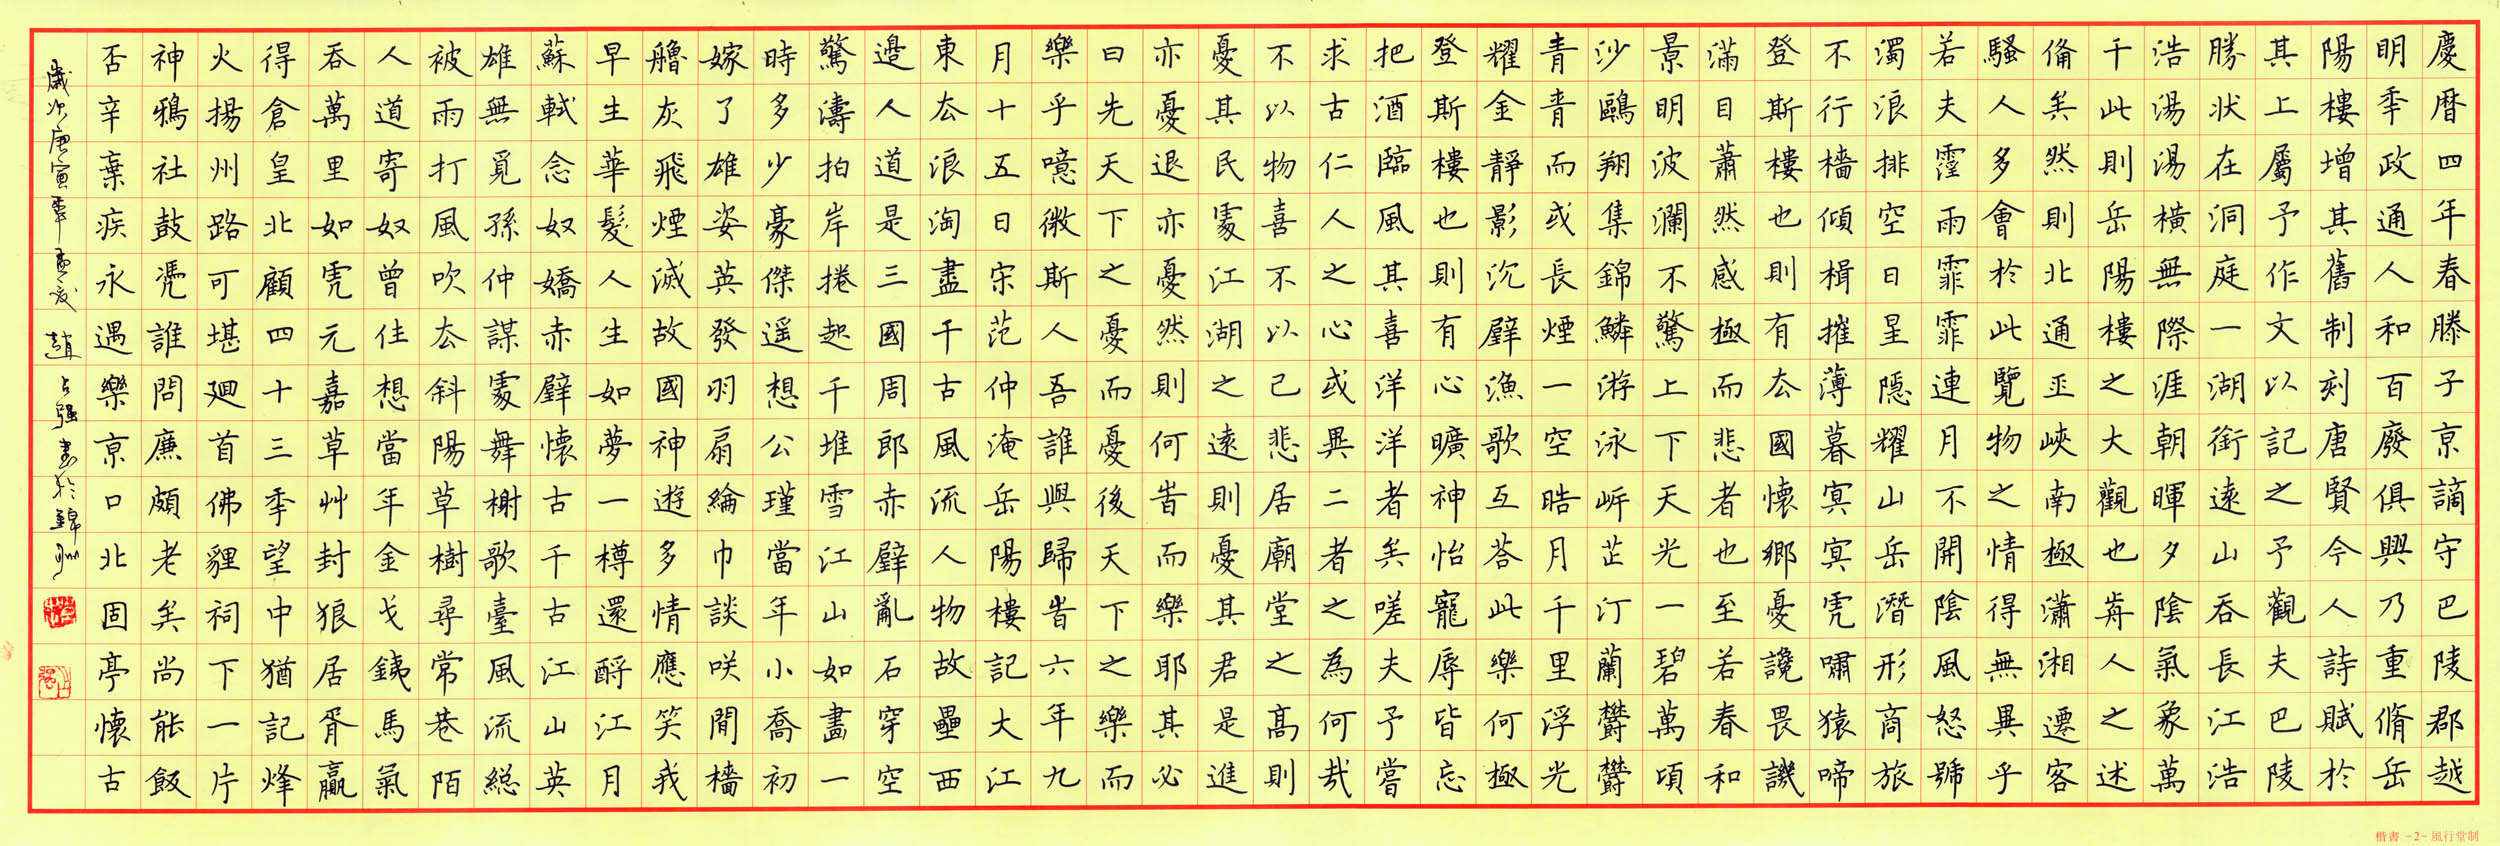 慶曆四年春滕子京謫守巴陵郡越
明年政通人和百廢俱興乃重脩岳
陽樓增其舊制刻唐賢今人詩賦於
其上屬予作文以記之予觀夫巴陵
勝狀在洞庭一湖銜遠山吞長江浩
浩湯湯橫無際涯朝暉夕陰氣象萬
千此則岳陽樓之大觀也前人之述
備矣然則北通巫峽南極瀟湘遷客
騷人多會於此覽物之情得無異乎
若夫霪雨霏霏連月不開陰風怒號
濁浪排空日星隱耀山岳潛形商旅
不行檣傾楫摧薄暮冥冥虎嘯猿啼
登斯樓也則有去國懷鄉憂讒畏譏
滿目蕭然感極而悲者也至若春和
景明波瀾不驚上下天光一碧萬頃
沙鷗翔集錦鱗游泳岸芷汀蘭鬱鬱
青青而或長煙一空皓月千里浮光
耀金靜影沉璧漁歌互答此樂何極
登斯樓也則有心曠神怡寵辱皆忘
把酒臨風其喜洋洋者矣嗟夫予嘗
求古仁人之心或異二者之為何哉
不以物喜不以己悲居廟堂之高則
憂其民處江湖之遠則憂其君是進
亦憂退亦憂然則何時而樂耶其必
曰先天下之憂而憂後天下之樂而
樂乎噫微斯人吾誰與歸時六年九
月十五日宋范仲淹岳陽樓記大江
東去浪淘盡千古風流人物故壘西
邊人道是三國周郎赤壁亂石穿空
驚濤拍岸捲起千堆雪江山如畫一
時多少豪傑遥想公瑾當年小喬初
嫁了雄姿英發羽扇綸巾談笑間檣
艣灰飛煙滅故國神遊多情應笑我
早生華髮人生如夢一樽還酹江月
蘇軾念奴嬌赤壁懷古千古江山英
雄無覓孫仲謀處舞榭歌臺風流総
被雨打風吹去斜陽草樹尋常巷陌
人道寄奴曾住想當年金戈鐵馬氣
吞萬里如虎元嘉草艸封狼居胥贏
得倉皇北顧四十三年望中猶記烽
火揚州路可堪迴首佛貍祠下一片
神鴉社鼓憑誰問廉頗老矣尚能飯
否辛棄疾永遇樂京口北固亭懷古
歲次庚寅 趙占強書於錦州
楷書 -2- 風行堂制